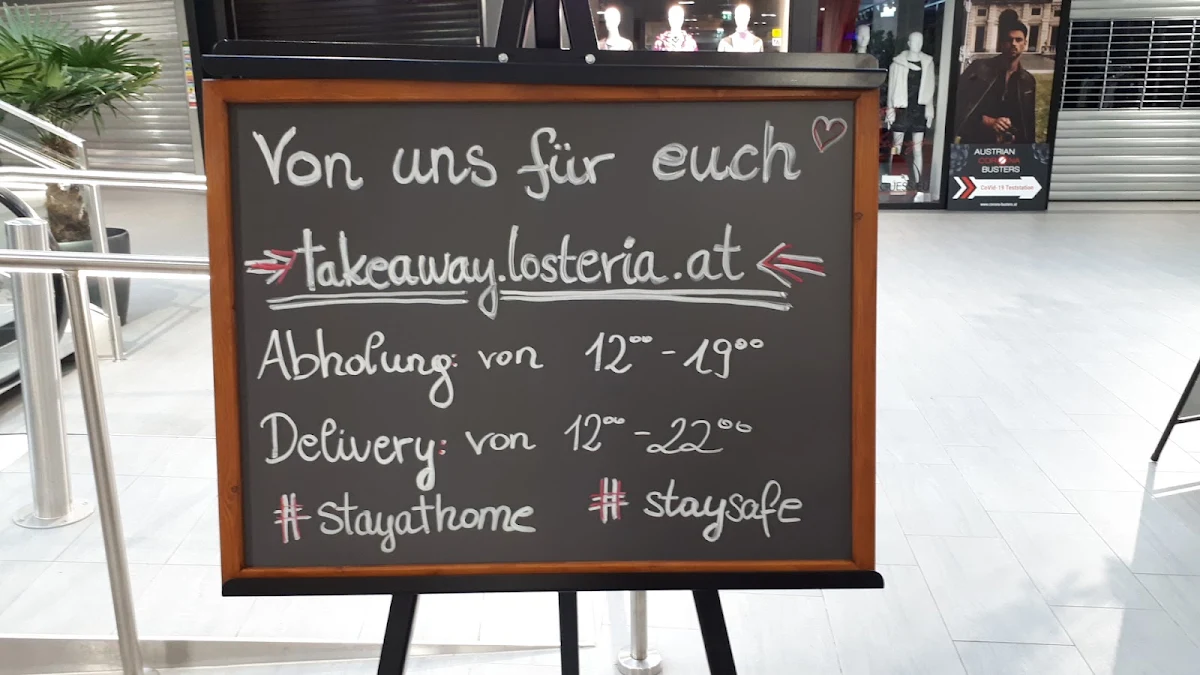 Von uns für euch
takeaway.losteria.at
Abholung: von 12⁰⁰ - 19⁰⁰
Delivery: von 12⁰⁰ - 22⁰⁰
#stayathome #staysafe
AUSTRIAN
CORONA
BUSTERS
CoVid-19 Teststation